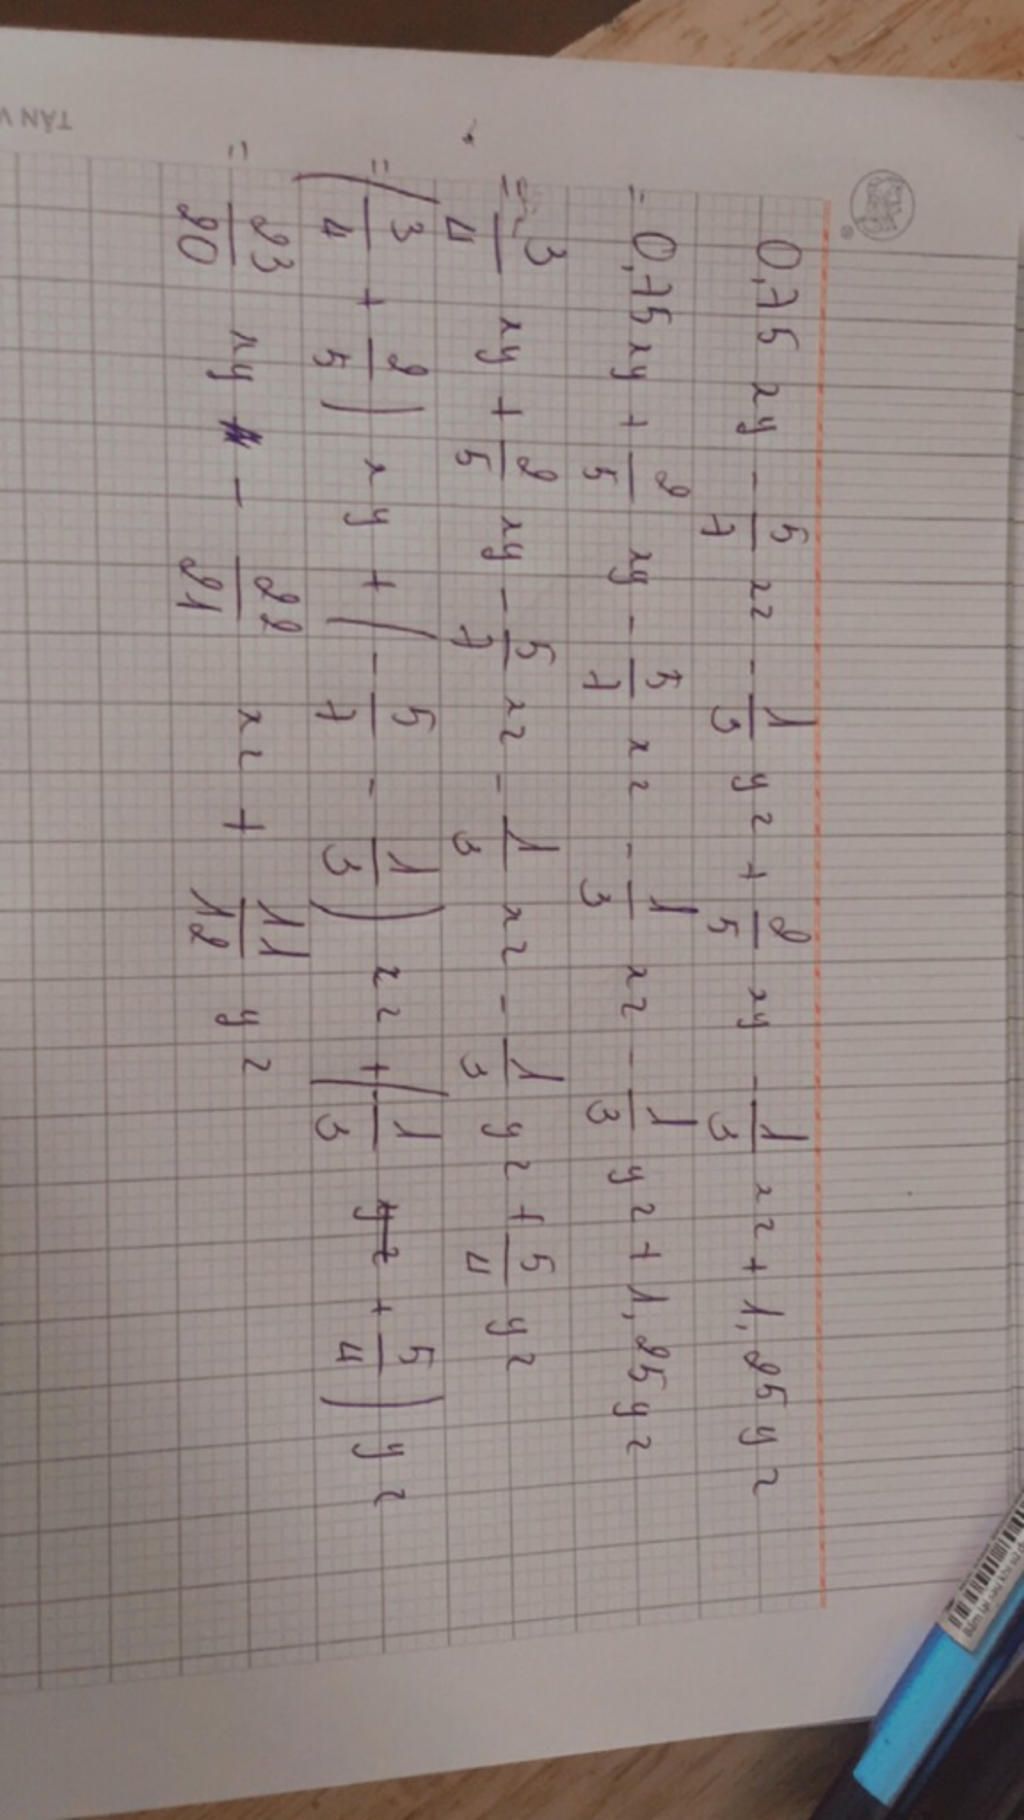 0,75 xy - 5/7 xz - 1/3 yz + 2/5 xy - 1/3 xz + 1,25 yz
= 0,75 xy + 2/5 xy - 5/7 xz - 1/3 xz - 1/3 yz + 1,25 yz
= 3/4 xy + 2/5 xy - 5/7 xz - 1/3 xz - 1/3 yz + 5/4 yz
= (3/4 + 2/5) xy + (-5/7 - 1/3) xz + (-1/3 + 5/4) yz
= 23/20 xy - 22/21 xz + 11/12 yz
TÂN